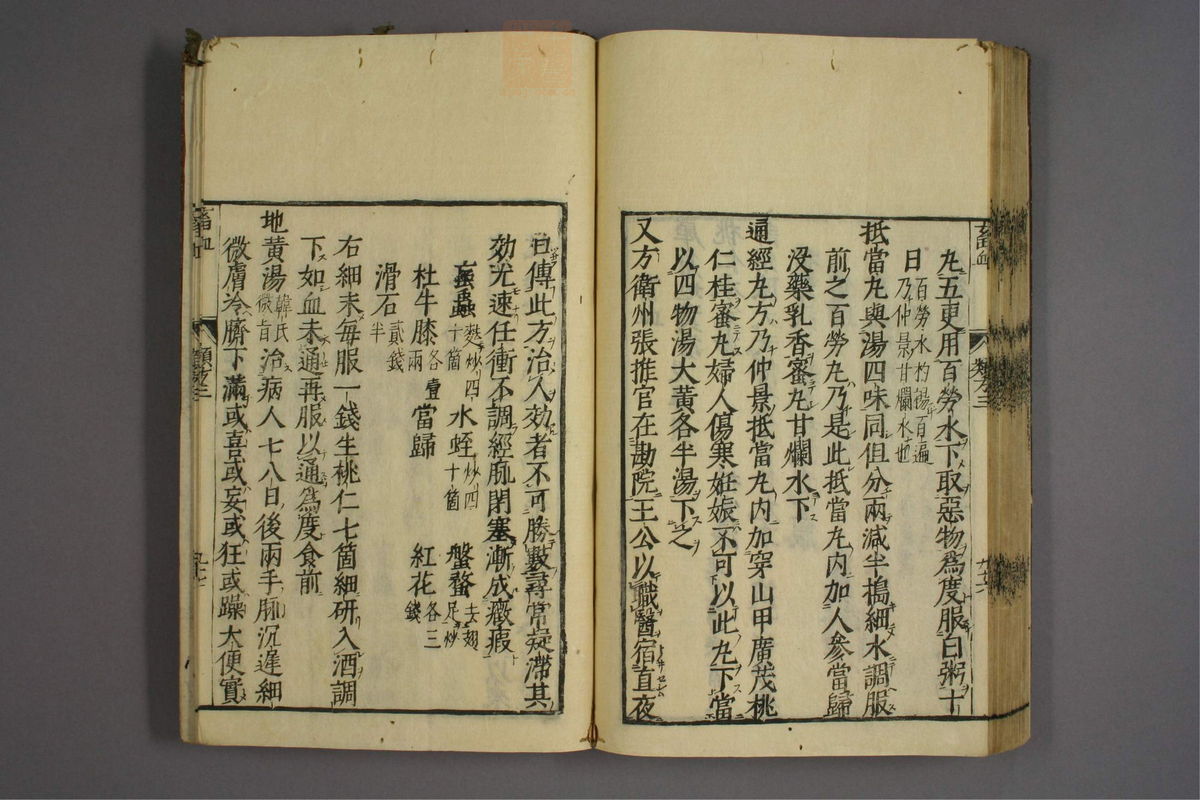 丸五更用百勞水下取惡物爲度服白粥十
日百勞水杓揚百遍乃仲景甘爛水也
抵當丸與湯四味同但分兩減半搗細水調服
前之百勞丸乃是此抵當丸内加人參當歸
没藥乳香蜜丸甘爛水下
通經丸方乃仲景抵當丸内加穿山甲廣茂桃
仁桂蜜丸婦人傷寒姙娠不可以此丸下當
以四物湯大黃各半湯下之
又方衛州張推官在勘院王公以職醫宿直夜
日傳此方治人効者不可勝數尋常凝滯其
効尤速任衝不調經脉閉塞漸成癥瘕
䖟蟲十箇麩炒四 水蛭十箇炒四 盤蝥去翅足炒
杜牛膝各壹兩 當歸 紅花各三錢
滑石貳錢半
右細末每服一錢生桃仁七箇細研入酒調
下如血未通再服以通爲度食前
地黃湯韓氏微旨治病人七八日後兩手脉沉遲細
微膚冷臍下滿或喜或妄或狂或躁大便實